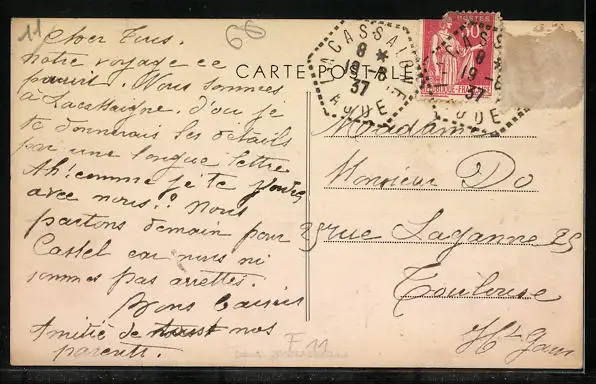 11
60
Cher Tous.
notre voyage ce
poursuit. Nous sommes
à Lacassaigne. d'ou je
te donnerais les détails
par une longue lettre
Ah! comme je te
avec nous!! Nous
partons demain pour
Castel car nous ni
sommes pas arrettés.
Bons baisers
Amitié de tous nos
parents.
F 11
CARTE POSTALE
LACASSAIGNE
8 *
19-8
37
AUDE
POSTES
50c
RÉPUBLIQUE-FRANÇAISE
8
19
37
AUDE
Madame
Monsieur Do
25 rue Laganne 25
Toulouse
Hte Gar